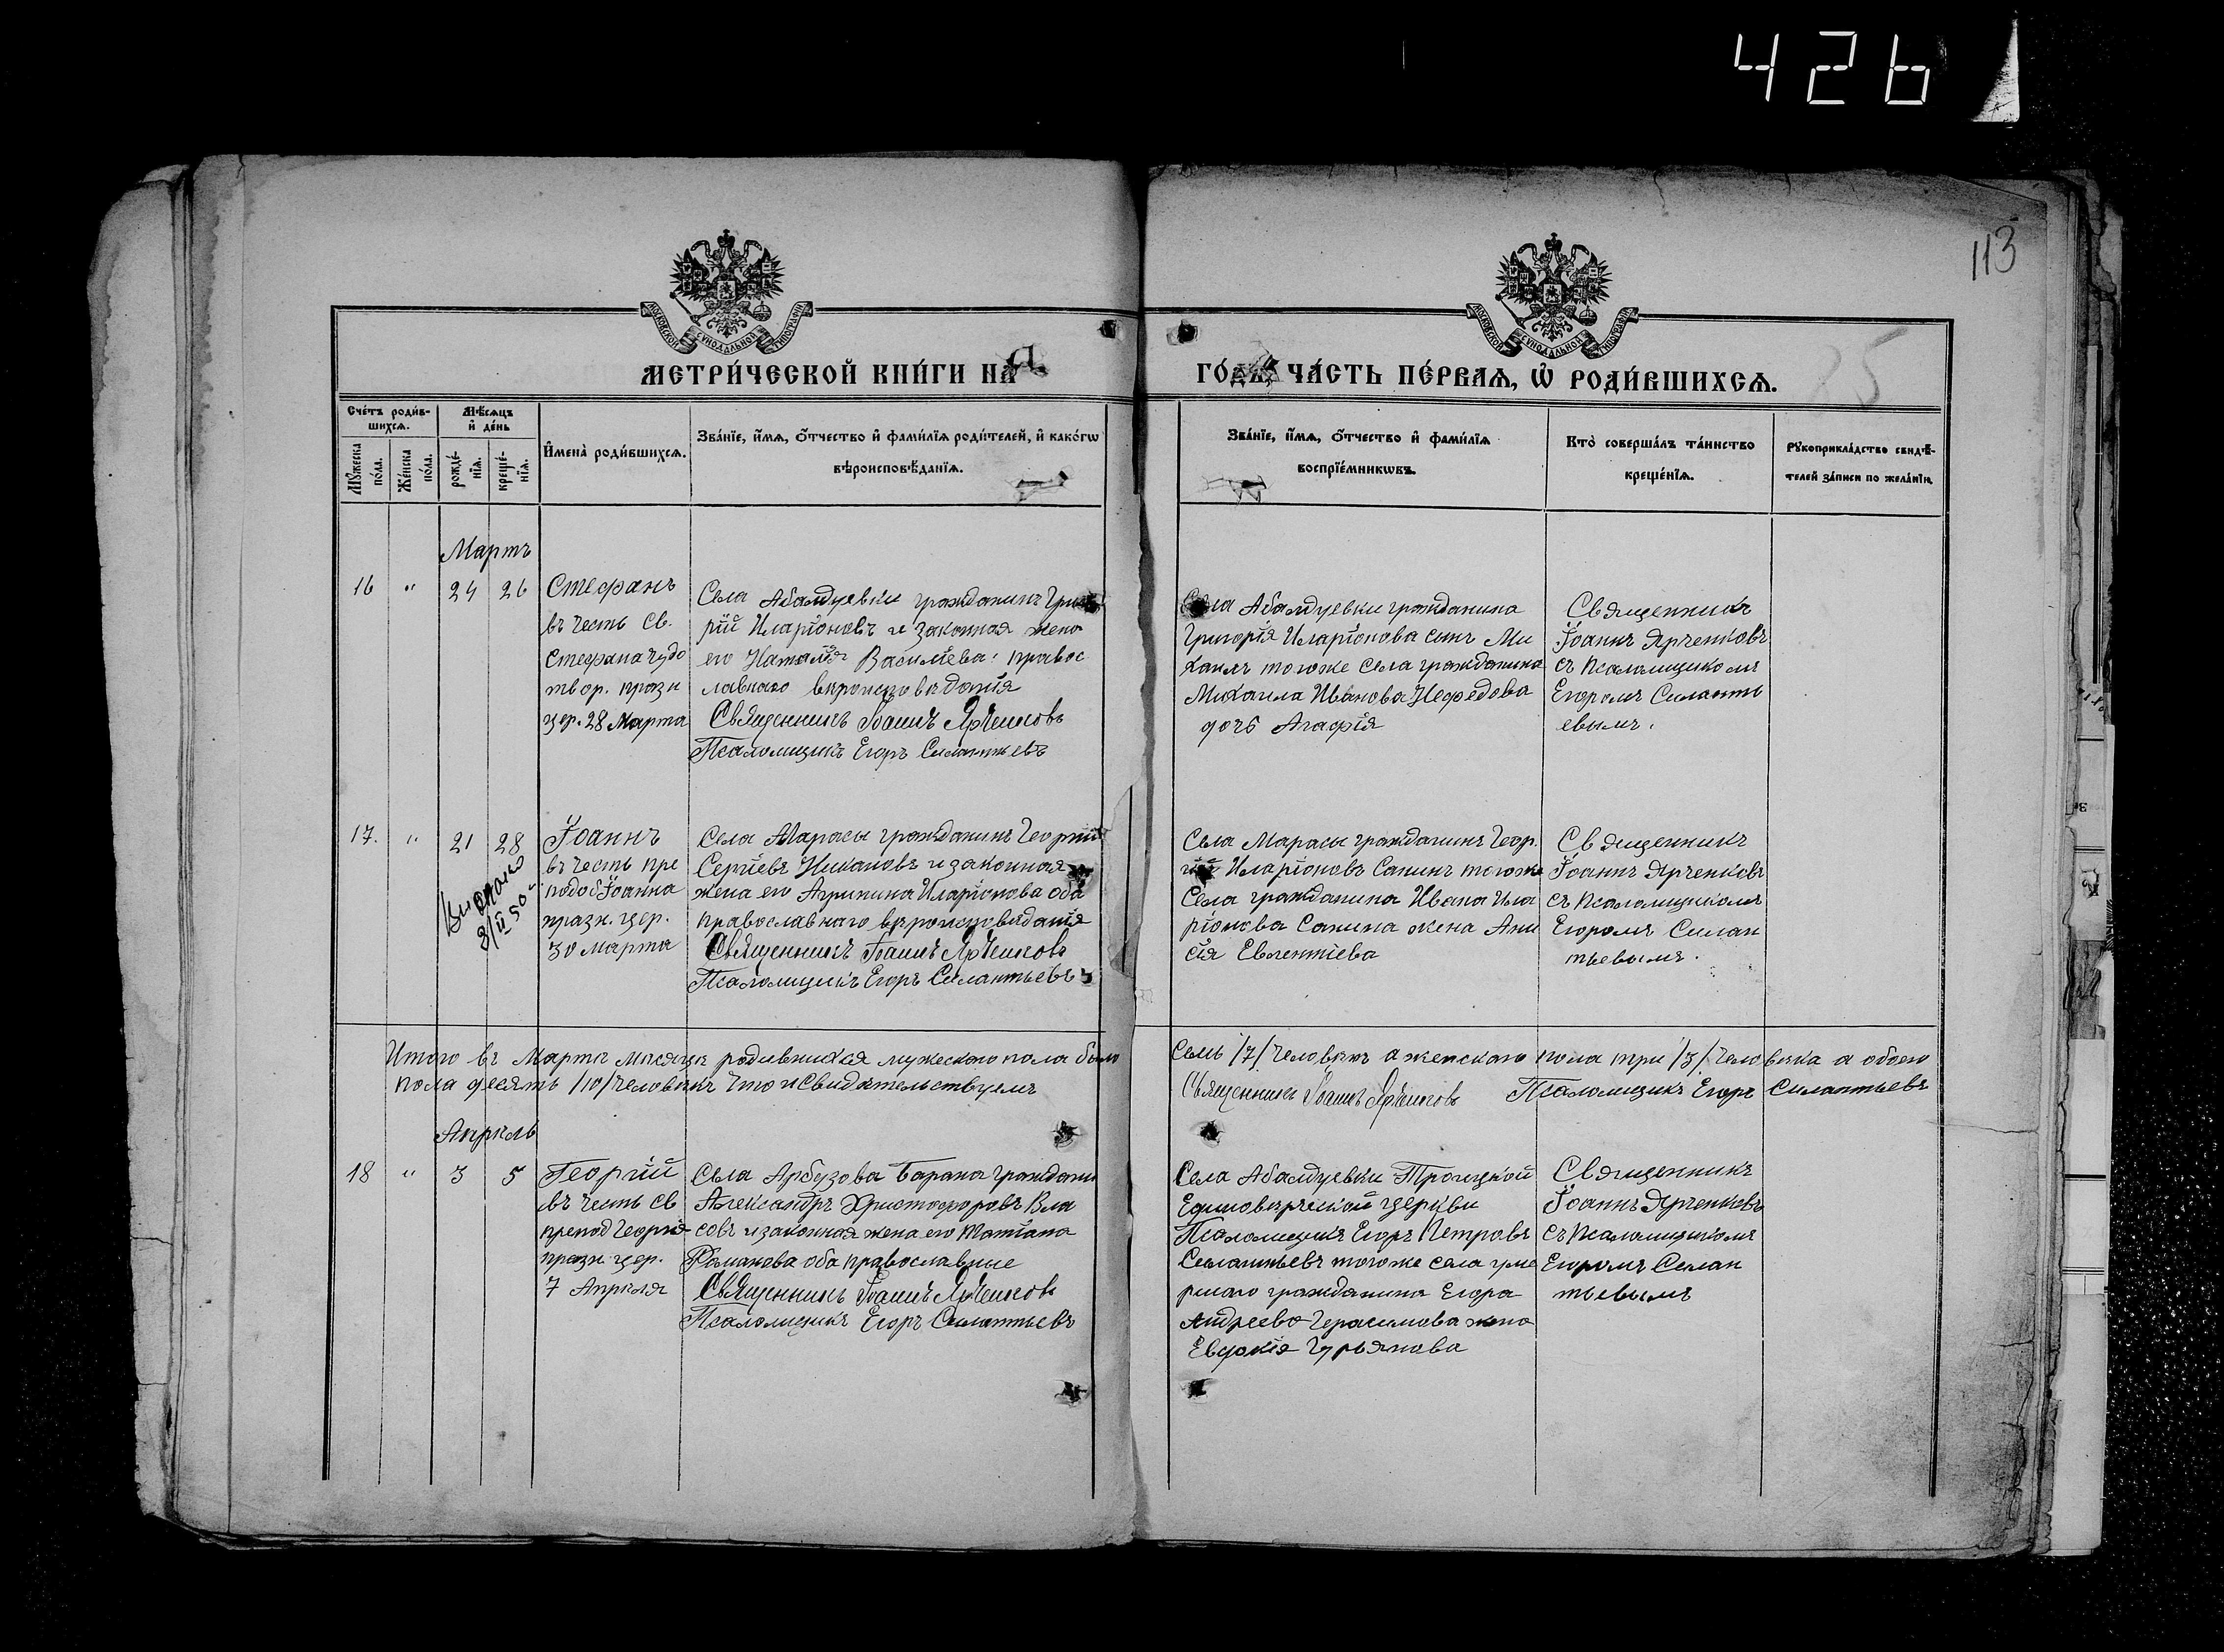 426
113
25
МОСКОВСКОЙ СѴНОДАЛЬНОЙ ТИПОГРАФІИ
МОСКОВСКОЙ СѴНОДАЛЬНОЙ ТИПОГРАФІИ
МЕТРИ́ЧЕСКОЙ КНИ́ГИ НА
ГО́ДЪ, ЧА́СТЬ ПЕ́РВАѦ, Ѡ҆ РОДИ́ВШИХСѦ.
Сче́тъ роди́в-
шихсѧ.
Мѣ́сѧцъ
и҆ де́нь
Мꙋ́жеска
по́ла.
Же́нска
по́ла.
рожде́-
нїѧ.
креще́-
нїѧ.
И҆мена̀ роди́вшихсѧ.
Зва́нїе, и҆́мѧ, ѻ҆́тчество и҆ фами́лїѧ роди́телей, и҆ како́гѡ
вѣроисповѣ́данїѧ.
Зва́нїе, и҆́мѧ, ѻ҆́тчество и҆ фами́лїѧ
воспрїе́мникѡвъ.
Кто̀ соверша́лъ та́инство
креще́нїѧ.
Рꙋкоприкла́дство свидѣ́-
телей за́писи по жела́нїю.
Мартъ
16 " 24 26
Стефанъ
въ честь Св.
Стефана чудо
твор. празн
цер. 28 Марта
Села Абалдуевки гражданинъ Григо
рій Иларіоновъ и законная жена
его Наталія Василіева: правос
лавнаго вѣроисповѣданія
Священникъ Іоаннъ Ярченковъ
Псаломщикъ Егоръ Силантьевъ
Села Абалдуевки гражданина
Григорія Иларіонова сынъ Ми
хаилъ тогоже Села гражданина
Михаила Иванова Нефедова
дочь Агафія
Священникъ
Іоаннъ Ярченковъ
съ Псаломщикомъ
Егоромъ Силанть
евымъ.
17. " 21 28
Выдано
8/II 50
Іоаннъ
въ честь пре
подоб Іоанна
празн. цер.
30 Марта
Села Марасы гражданинъ Георгій
Сергіевъ Никаповъ и законная
жена его Агрипина Иларіонова оба
православнаго вѣроисповѣданія
Священникъ Іоаннъ Ярченковъ
Псаломщикъ Егоръ Силантьевъ
Села Марасы гражданинъ Геор.
гій Иларіоновъ Санинъ тогоже
Села гражданина Ивана Ила
ріонова Санина жена Ани
сія Евлентіева
Священникъ
Іоаннъ Ярченковъ
съ Псаломщикомъ
Егоромъ Силан
тьевымъ.
Итого въ Мартѣ мѣсяцѣ родившихся мужескаго пола было Семь /7/ человѣкъ а женскаго пола три /3/ человѣка а обоего
пола десять /10/ человѣкъ что и Свидѣтельствуемъ Священникъ Іоаннъ Ярченковъ Псаломщикъ Егоръ Силантьевъ
Апрѣль
18 " 3 5
Георгій
въ честь св
препод Георгія
празн. цер.
7 Апрѣля
Села Арбузова Барана граждани
Александръ Христофоровъ Вла
совъ и законная жена его Татіана
Романова оба православные
Священникъ Іоаннъ Ярченковъ
Псаломщикъ Егоръ Силантьевъ
Села Абалдуевки Троицкой
Единовѣрческой церкви
Псаломщикъ Егоръ Петровъ
Силантьевъ тогоже села уме
ршаго гражданина Егора
Андреева Герасимова жена
Евдокія Гурьянова
Священникъ
Іоаннъ Ярченковъ
съ Псаломщикомъ
Егоромъ Силан
тьевымъ